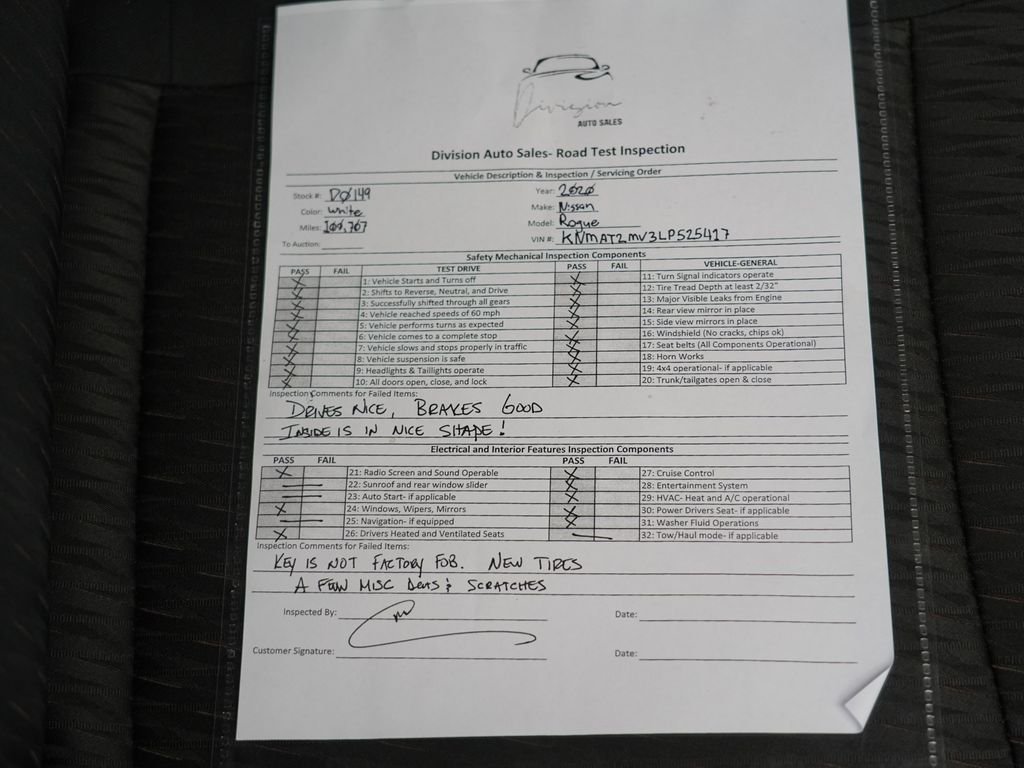 Division
AUTO SALES
Division Auto Sales- Road Test Inspection
Vehicle Description & Inspection / Servicing Order
Stock #: D0149 Year: 2020
Color: White Make: Nissan
Miles: 100,767 Model: Rogue
To Auction: VIN #: KNMAT2MV3LP525417
Safety Mechanical Inspection Components
PASS FAIL TEST DRIVE PASS FAIL VEHICLE-GENERAL
X 1: Vehicle Starts and Turns off X 11: Turn Signal indicators operate
X 2: Shifts to Reverse, Neutral, and Drive X 12: Tire Tread Depth at least 2/32"
X 3: Successfully shifted through all gears X 13: Major Visible Leaks from Engine
X 4: Vehicle reached speeds of 60 mph X 14: Rear view mirror in place
X 5: Vehicle performs turns as expected X 15: Side view mirrors in place
X 6: Vehicle comes to a complete stop X 16: Windshield (No cracks, chips ok)
X 7: Vehicle slows and stops properly in traffic X 17: Seat belts (All Components Operational)
X 8: Vehicle suspension is safe X 18: Horn Works
X 9: Headlights & Taillights operate X 19: 4x4 operational- if applicable
X 10: All doors open, close, and lock X 20: Trunk/tailgates open & close
Inspection Comments for Failed Items:
DRIVES NICE, BRAKES GOOD
INSIDE IS IN NICE SHAPE!
Electrical and Interior Features Inspection Components
PASS FAIL PASS FAIL
X 21: Radio Screen and Sound Operable X 27: Cruise Control
22: Sunroof and rear window slider X 28: Entertainment System
23: Auto Start- if applicable X 29: HVAC- Heat and A/C operational
X 24: Windows, Wipers, Mirrors X 30: Power Drivers Seat- if applicable
25: Navigation- if equipped X 31: Washer Fluid Operations
X 26: Drivers Heated and Ventilated Seats 32: Tow/Haul mode- if applicable
Inspection Comments for Failed Items:
KEY IS NOT FACTORY FOB. NEW TIRES
A FEW MISC DENTS & SCRATCHES
Inspected By: Date:
Customer Signature: Date: